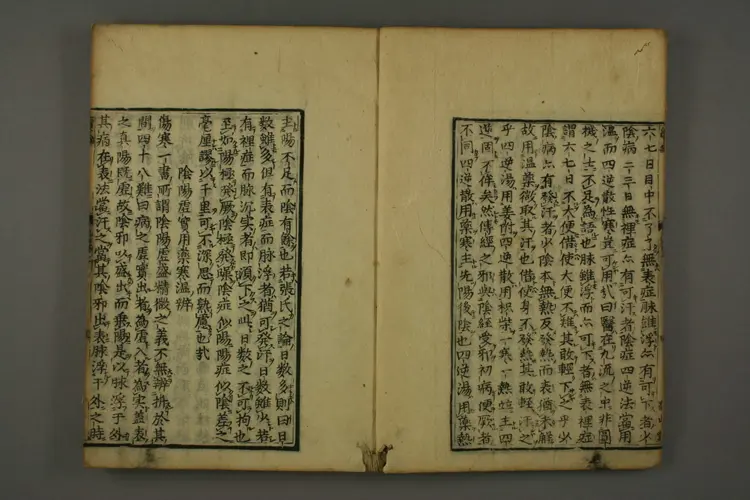 六七日目中不了了無表症脉雖浮亦有可下者少
陰病二三日無裡症亦有可汗者陰症四逆法當用
溫而四逆散性寒豈可用代曰醫在九流之中非單
機之士不足為語也脉雖浮而亦可下者無表裡症
謂六七日不大便借使大便不難其敢輕下之乎少
陰病亦有發汗者少陰本無熱反發熱而表猶未觧
故用溫藥微取其汗也借使身不發熱其敢輕汗之
乎四逆湯用姜附四逆散用根柴一寒一熱並主四
逆固不侔矣然傳經之邪與陰經受邪初病便厥者
不同四逆散用藥寒主先陽後陰也四逆湯用藥熱
主陽不足而陰有餘也若張氏之論日數多則曰日
數雖多但有表症而脉浮者猶可發汗日數雖少若
有裡症而脉沉実者即須下之此日數之不可拘也
至如陽極發厥陰極發躁陰症似陽陽症似陰差之
毫厘謬以千里可不深思而熟慮也㦲
陰陽虛實用藥寒溫辨
傷寒一書所謂陰陽虛盛精微之義不無辨拚於其
間四十八難曰病之虛實出者為虛入者為実盖表
之真陽旣虛故陰邪以盛出而乗陽是以脉浮于外
其病在表法當汗之當其陰邪出表脉浮于外之時